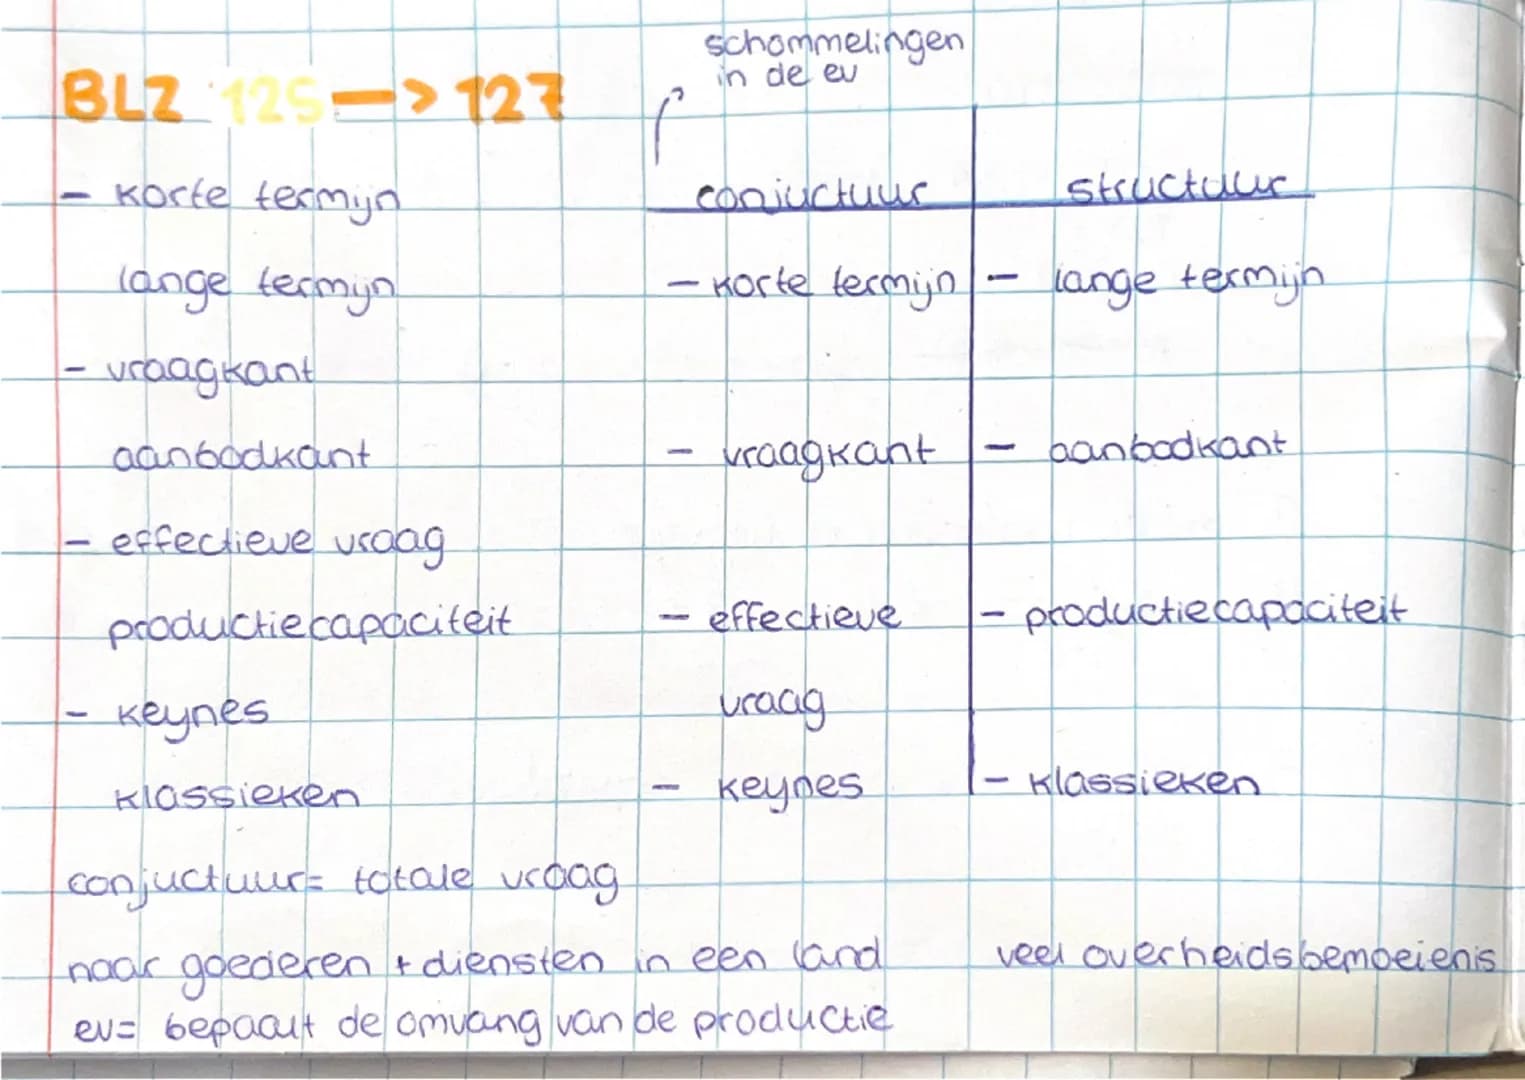 schommelingen
in de ev
BLZ 125 -> 127
- korte termijn
lange termijn
- vraagkant
aanbodkant
- effectieve vraag
productiecapaciteit
- keynes
klassieken
conjuctuur structuur
- korte termijn - lange termijn
- vraagkant - aanbodkant
- effectieve - productiecapaciteit
vraag
- keynes - klassieken
conjuctuur = totale vraag
naar goederen + diensten in een land
ev = bepaalt de omvang van de productie
veel overheidsbemoeienis